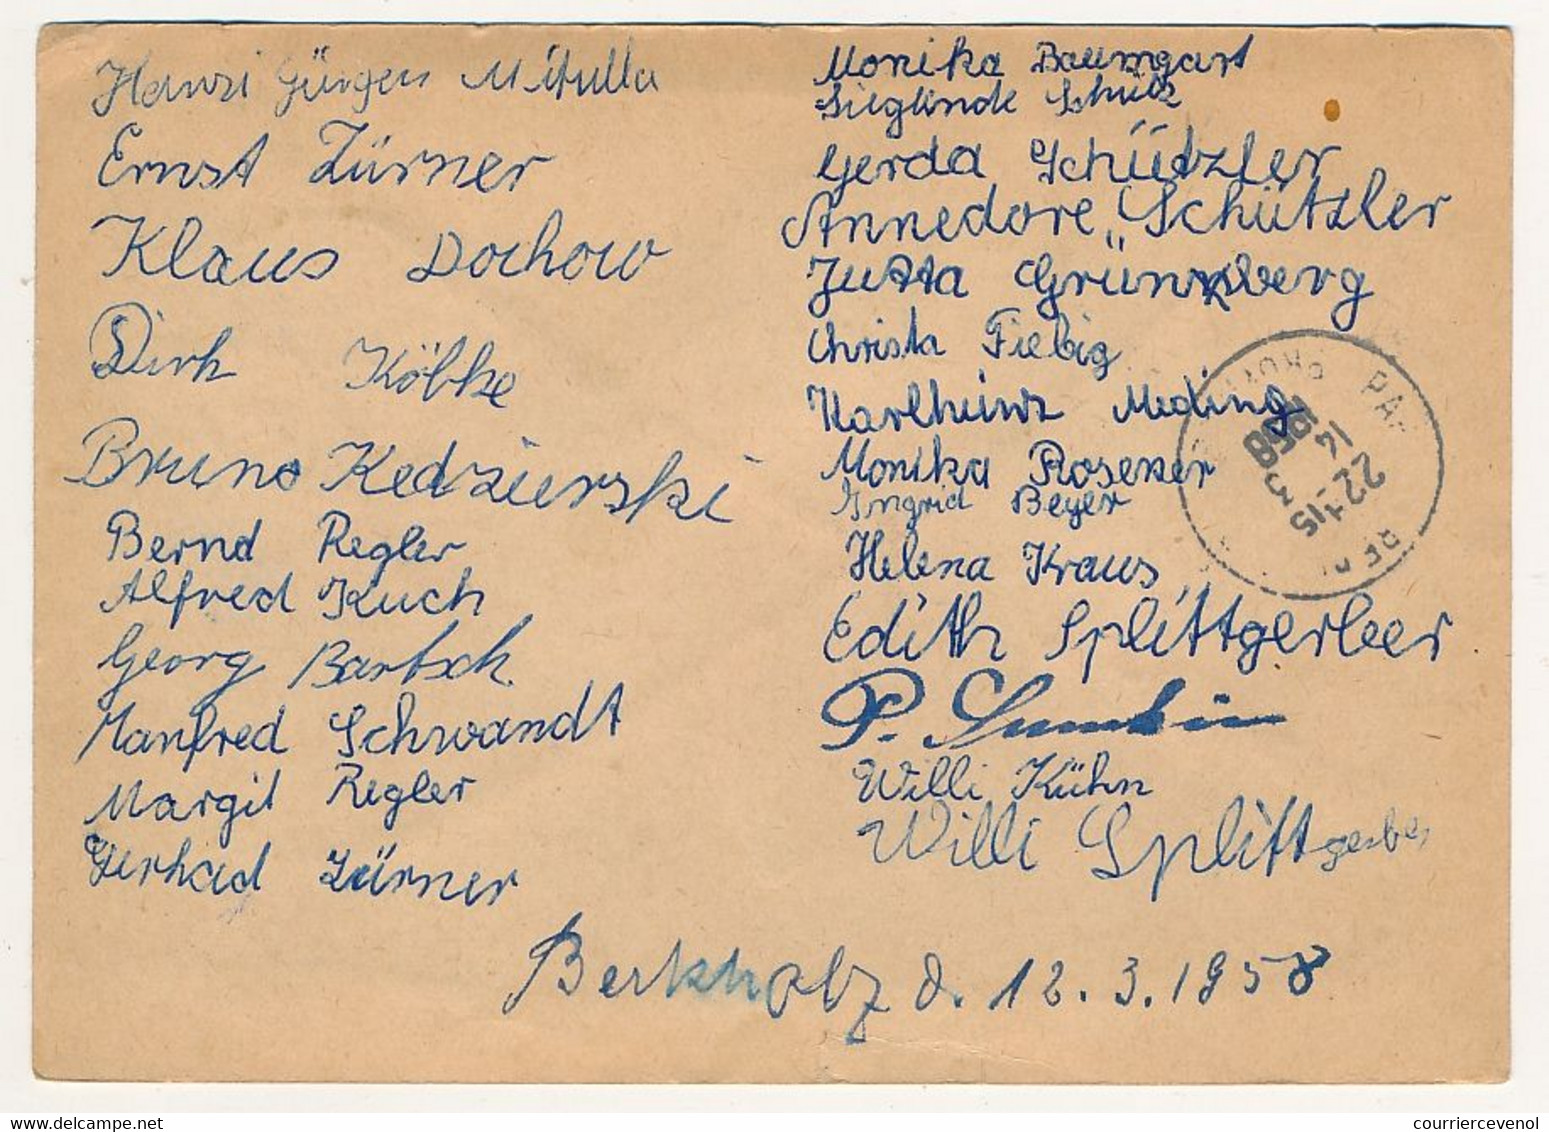 Hansi Jürgen Mitulla
Ernst Zürner
Klaus Dochow
Dirk Kölke
Bruno Kedzierski
Bernd Regler
Alfred Kuch
Georg Bartsch
Manfred Schwandt
Margit Regler
Gerhad Zürner
Monika Baumgart
Sieglinde Schülz
Gerda Schützler
Annedore Schützler
Jutta Grünberg
Christa Fiebig
Karlheinz Meding
Monika Rosener
Ingrid Beyer
Helena Kraus
Edith Splittgerber
P.
Willi Kühn
Willi Splittgerber
Berkholz d. 12.3.1958
15
22-3
1958
courriercevenol